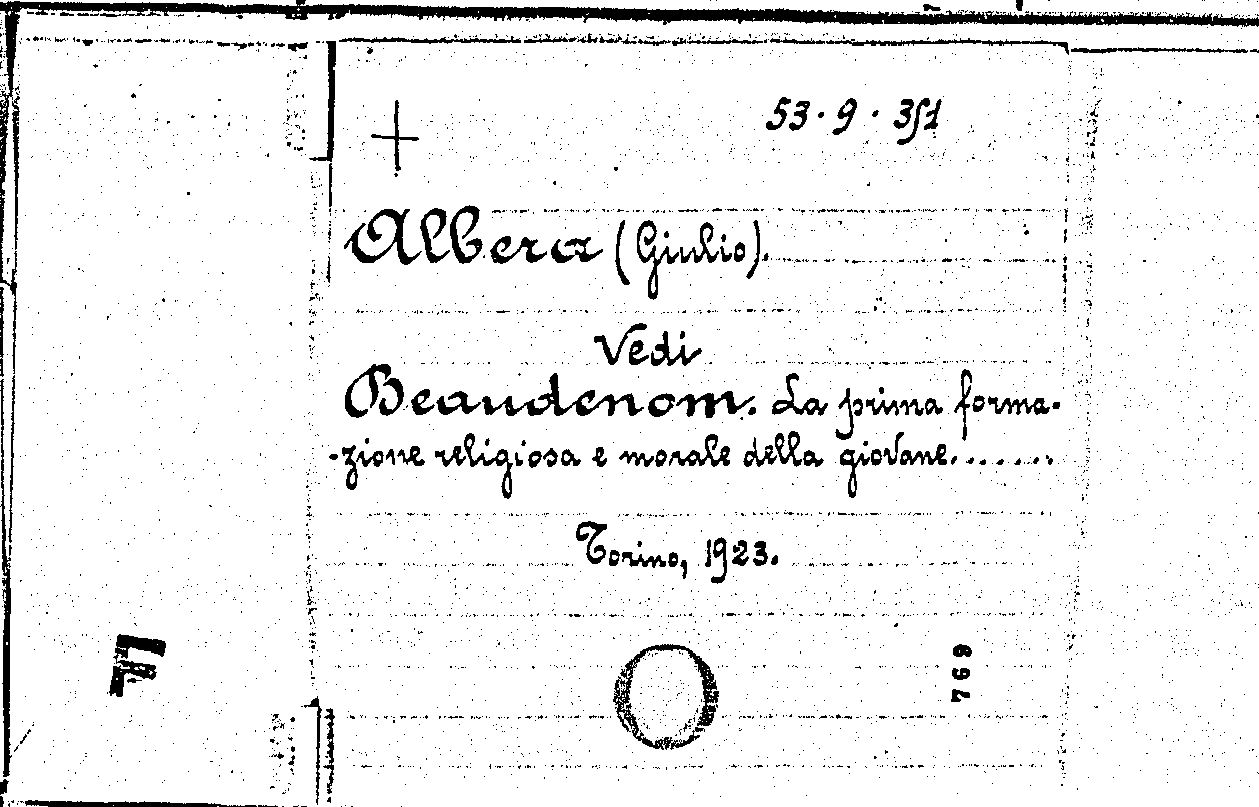 53 · 9 · 351
Albera (Giulio).
Vedi
Beaudenom. La prima forma-
-zione religiosa e morale della giovane.......
Torino, 1923.
769
F